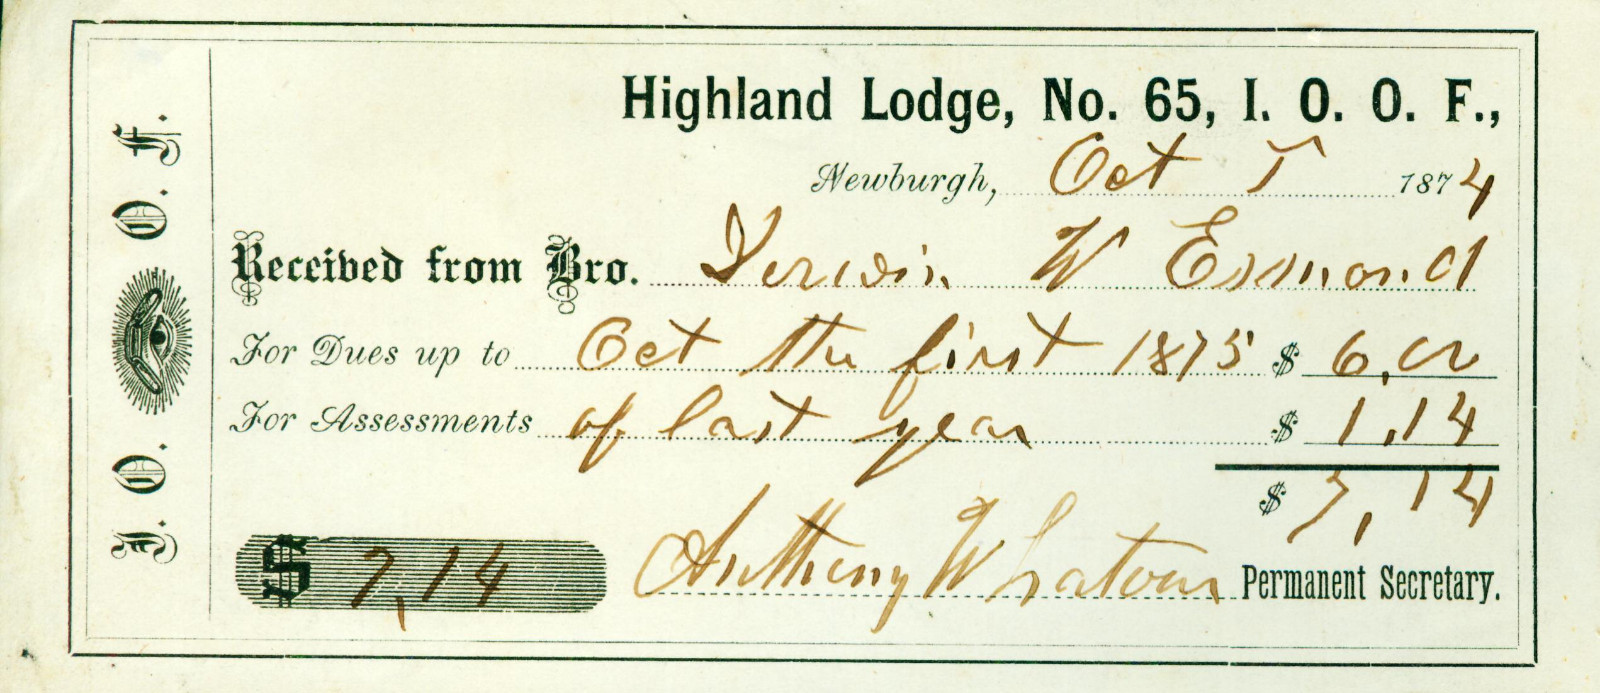 I. O. O. F.
Highland Lodge, No. 65, I. O. O. F.,
Newburgh, Oct 1 1874
Received from Bro. W Esmond
For Dues up to Oct the first 1875 $ 6,00
For Assessments of last year $ 1,14
$ 7,14
$ 7,14 Anthony Permanent Secretary.